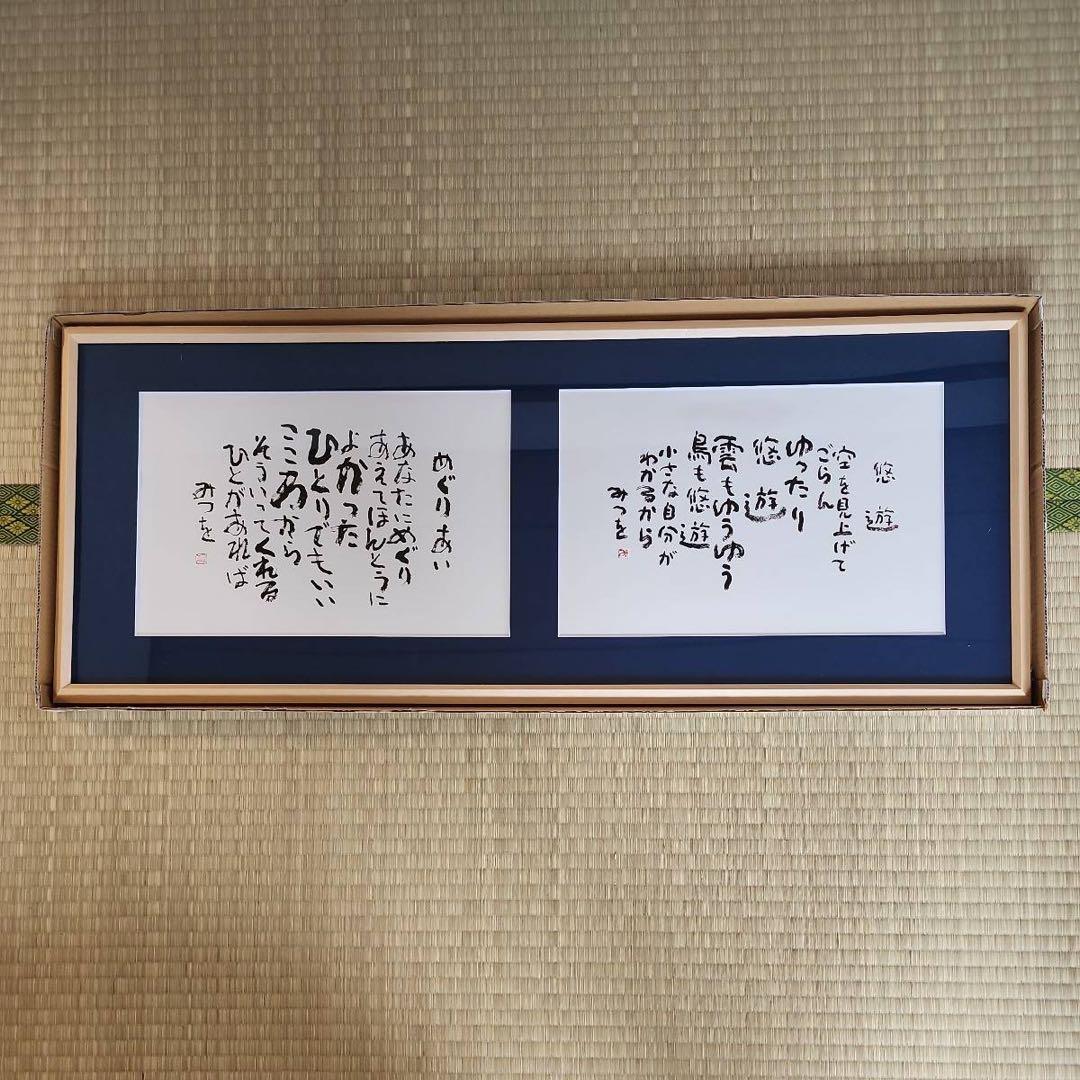 悠遊
空を見上げて
ごらん
ゆったり
悠遊
雲もゆうゆう
鳥も悠遊
小さな自分が
わかるから
みつを
めぐりあい
あなたにめぐり
あえてほんとうに
よかった
ひとりでもいい
こころから
そういってくれる
ひとがあれば
みつを